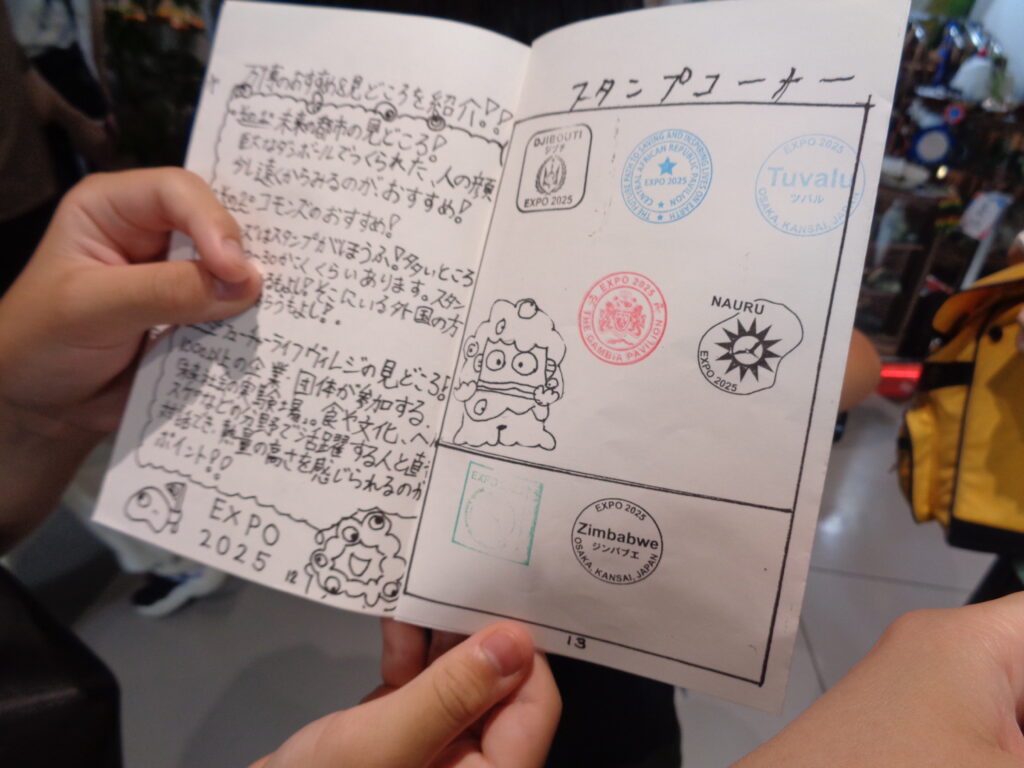 万博のおすすめ&見どころを紹介!!
未来の都市の見どころ!
巨大なダンボールでつくられた、人の顔
少し遠くからみるのが、おすすめ!
コモンズのおすすめ!
はスタンプがほうふ!多いところ
くらいあります。スタ
もよし!そこにいる外国の方
もらうもよし!
フューチャーライフヴィレジの見どころ!
以上の企業、団体が参加する、
の実験場。食や文化、ヘル
スケアなどの分野で活躍する人と直
対話でき、熱量の高さを感じられるのが
ポイント!!
EXPO
2025
12
スタンプコーナー
DJIBOUTI
ジブチ
EXPO 2025
THE POTENTIALS TO SAVING AND INSPIRING LIVES ON EARTH
EXPO 2025
CENTRAL AFRICAN REPUBLIC PAVILION
EXPO 2025
Tuvalu
ツバル
OSAKA, KANSAI, JAPAN
EXPO 2025
THE GAMBIA PAVILION
NAURU
EXPO 2025
EXPO 2025
EXPO 2025
Zimbabwe
ジンバブエ
OSAKA, KANSAI, JAPAN
13